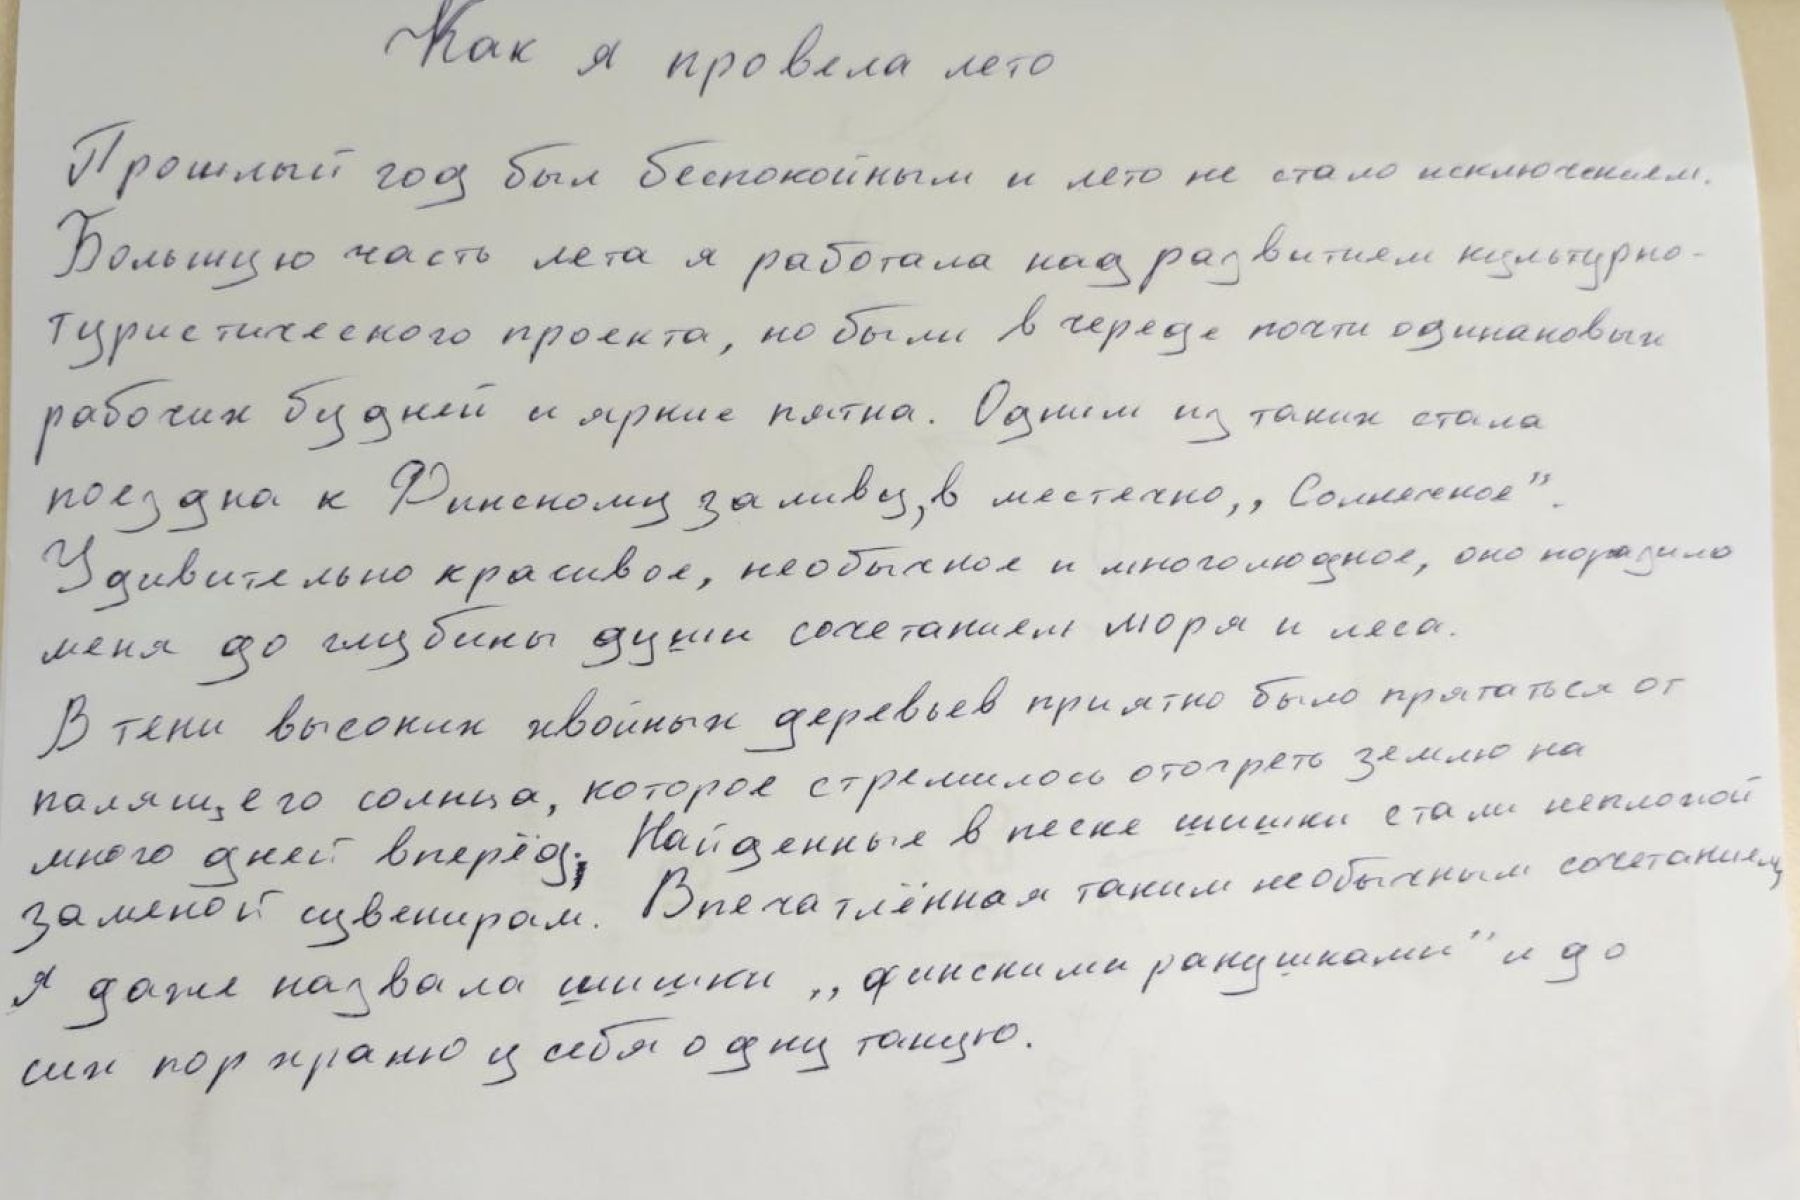 Как я провела лето
Прошлый год был беспокойным и лето не стало исключением.
Большую часть лета я работала над развитием культурно-
туристического проекта, но были в череде почти одинаковых
рабочих будней и яркие пятна. Одним из таких стала
поездка к Финскому заливу, в местечко „Солнечное”.
Удивительно красивое, необычное и многолюдное, оно поразило
меня до глубины души сочетанием моря и леса.
В тени высоких хвойных деревьев приятно было прятаться от
палящего солнца, которое стремилось отогреть землю на
много дней вперёд; Найденные в песке шишки стали неплохой
заменой сувенирам. Впечатлённая таким необычным сочетанием,
я даже назвала шишки „финскими ракушками” и до
сих пор храню у себя одну такую.